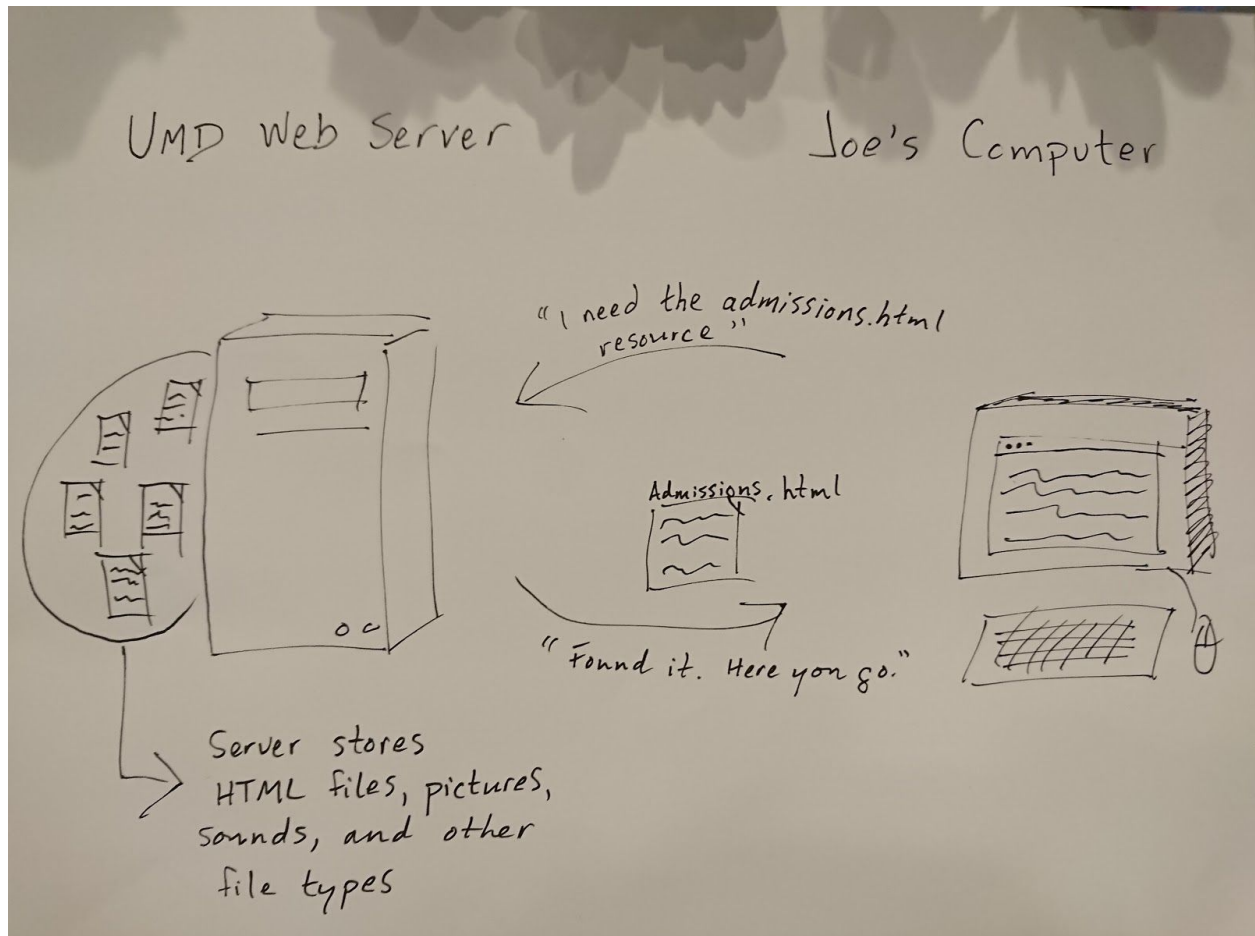 UMD Web Server
Joe's Computer
"I need the admissions.html
resource"
Admissions.html
"Found it. Here you go."
Server stores
HTML files, pictures,
sounds, and other
file types